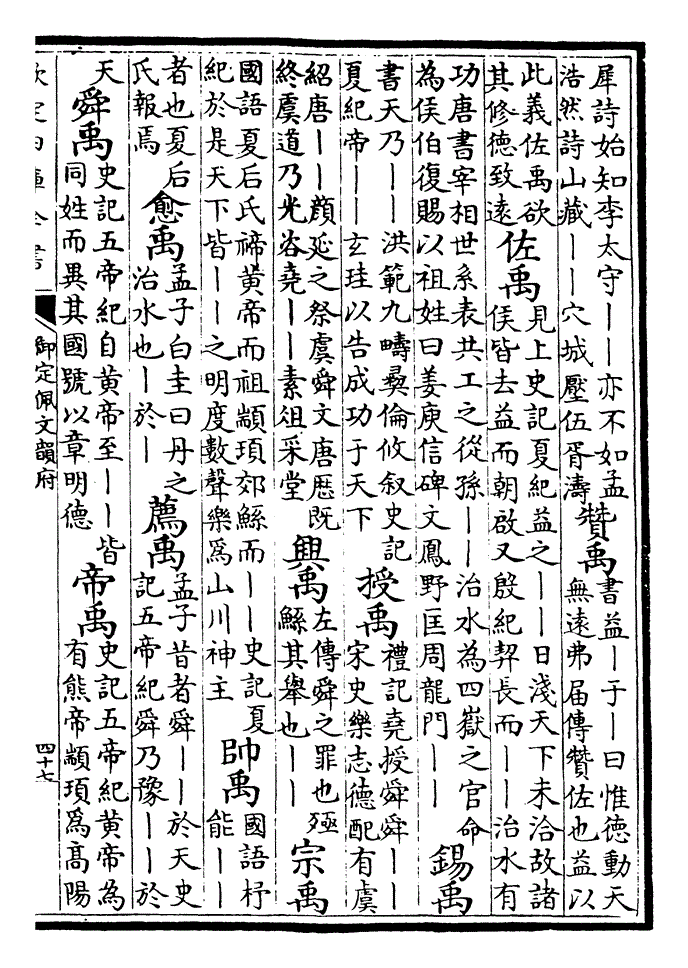 犀詩始知李太守——亦不如孟
浩然詩山藏——穴城壓伍胥濤
贊禹
書益—于—曰惟德動天
無遠弗届傳贊佐也益以
此義佐禹欲
其修德致遠
佐禹
見上史記夏紀益之——日淺天下未洽故諸
侯皆去益而朝啟又殷紀契長而——治水有
功唐書宰相世系表共工之從孫——治水為四嶽之官命
為侯伯復賜以祖姓曰姜庾信碑文鳳野匡周龍門——
錫禹
書天乃——洪範九疇彝倫攸叙史記
夏紀帝——玄珪以告成功于天下
授禹
禮記堯授舜舜——
宋史樂志德配有虞
紹唐——顔延之祭虞舜文唐歷既
終虞道乃光咨堯——素俎采堂
興禹
左傳舜之罪也殛
鯀其舉也——
宗禹
國語夏后氏禘黄帝而祖顓頊郊鯀而——史記夏
紀於是天下皆——之明度數聲樂為山川神主
帥禹
國語杼
能——
者也夏后
氏報焉
愈禹
孟子白圭曰丹之
治水也—於—
薦禹
孟子昔者舜——於天史
記五帝紀舜乃豫——於
天
舜禹
史記五帝紀自黄帝至——皆
同姓而異其國號以章明德
帝禹
史記五帝紀黄帝為
有熊帝顓頊為高陽
欽定四庫全書
御定佩文韻府
四十七